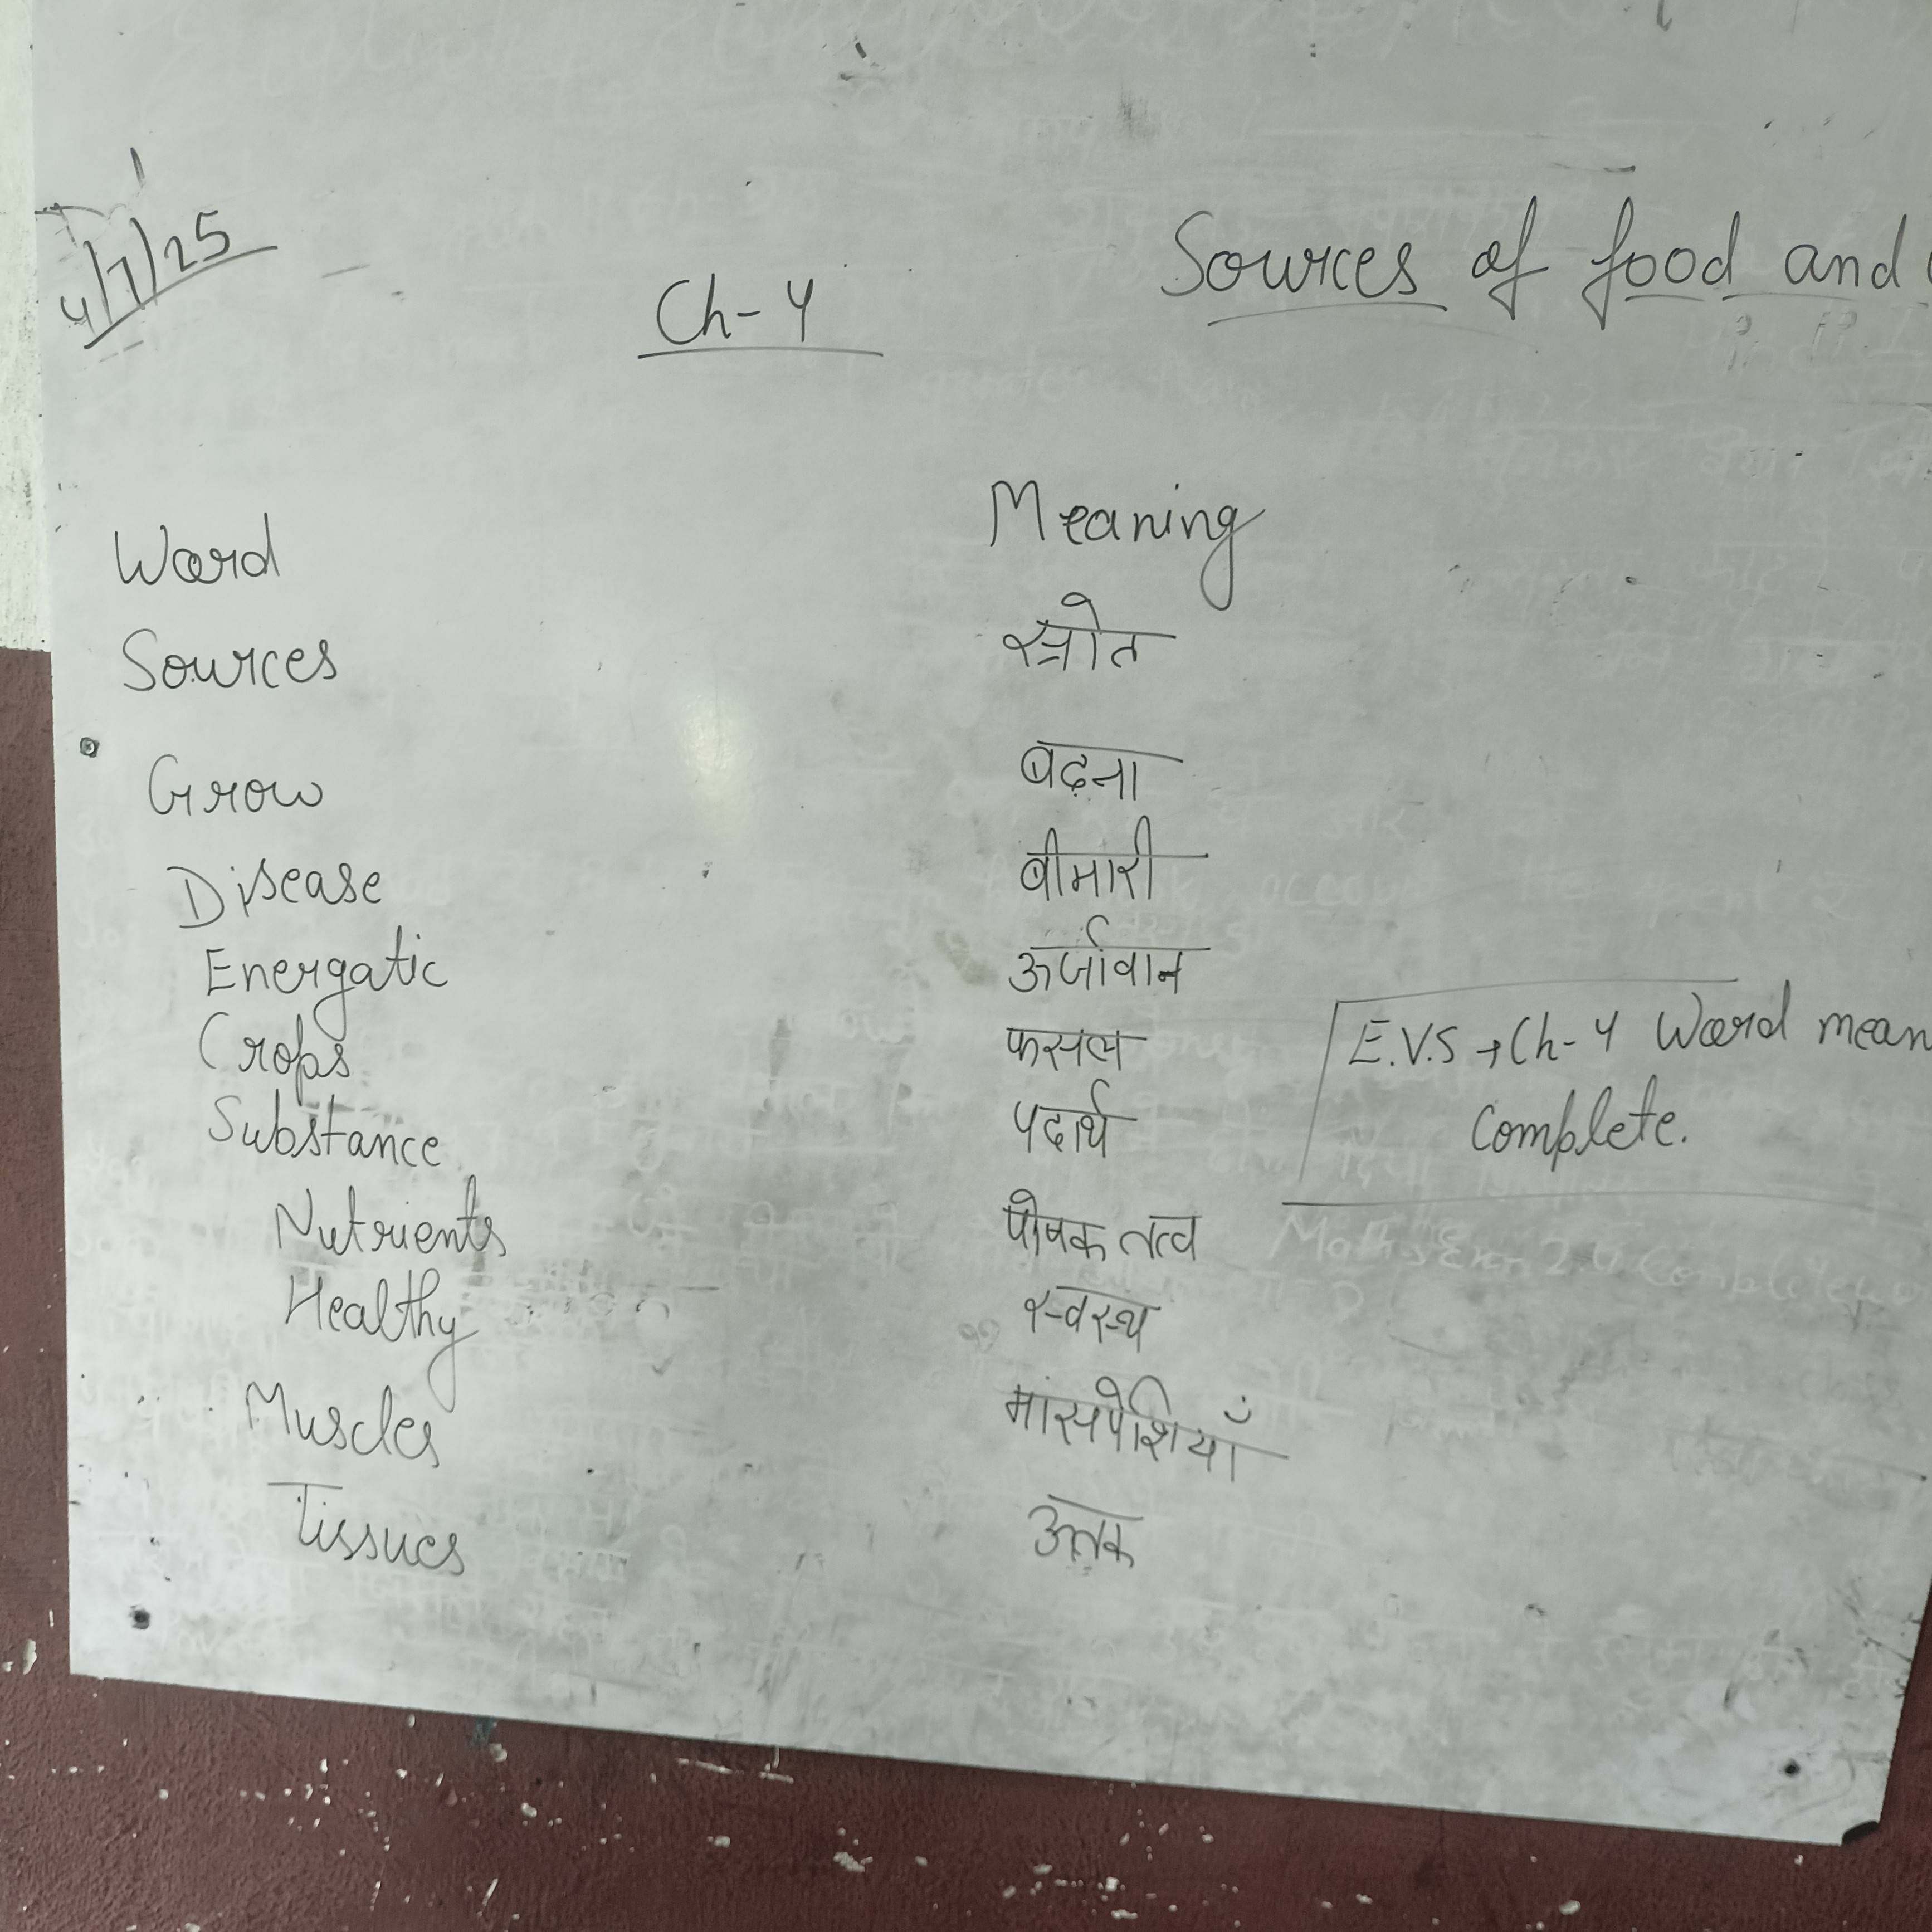 4/7/25
Ch-4 Sources of food and
Word Meaning
Sources स्त्रोत
Grow बढ़ना
Disease बीमारी
Energatic ऊर्जावान
Crops फसल
Substance पदार्थ
Nutrients पोषक तत्व
Healthy स्वस्थ
Muscles मांसपेशियाँ
Tissues ऊतक
E.V.S → Ch-4 Word mean
Complete.